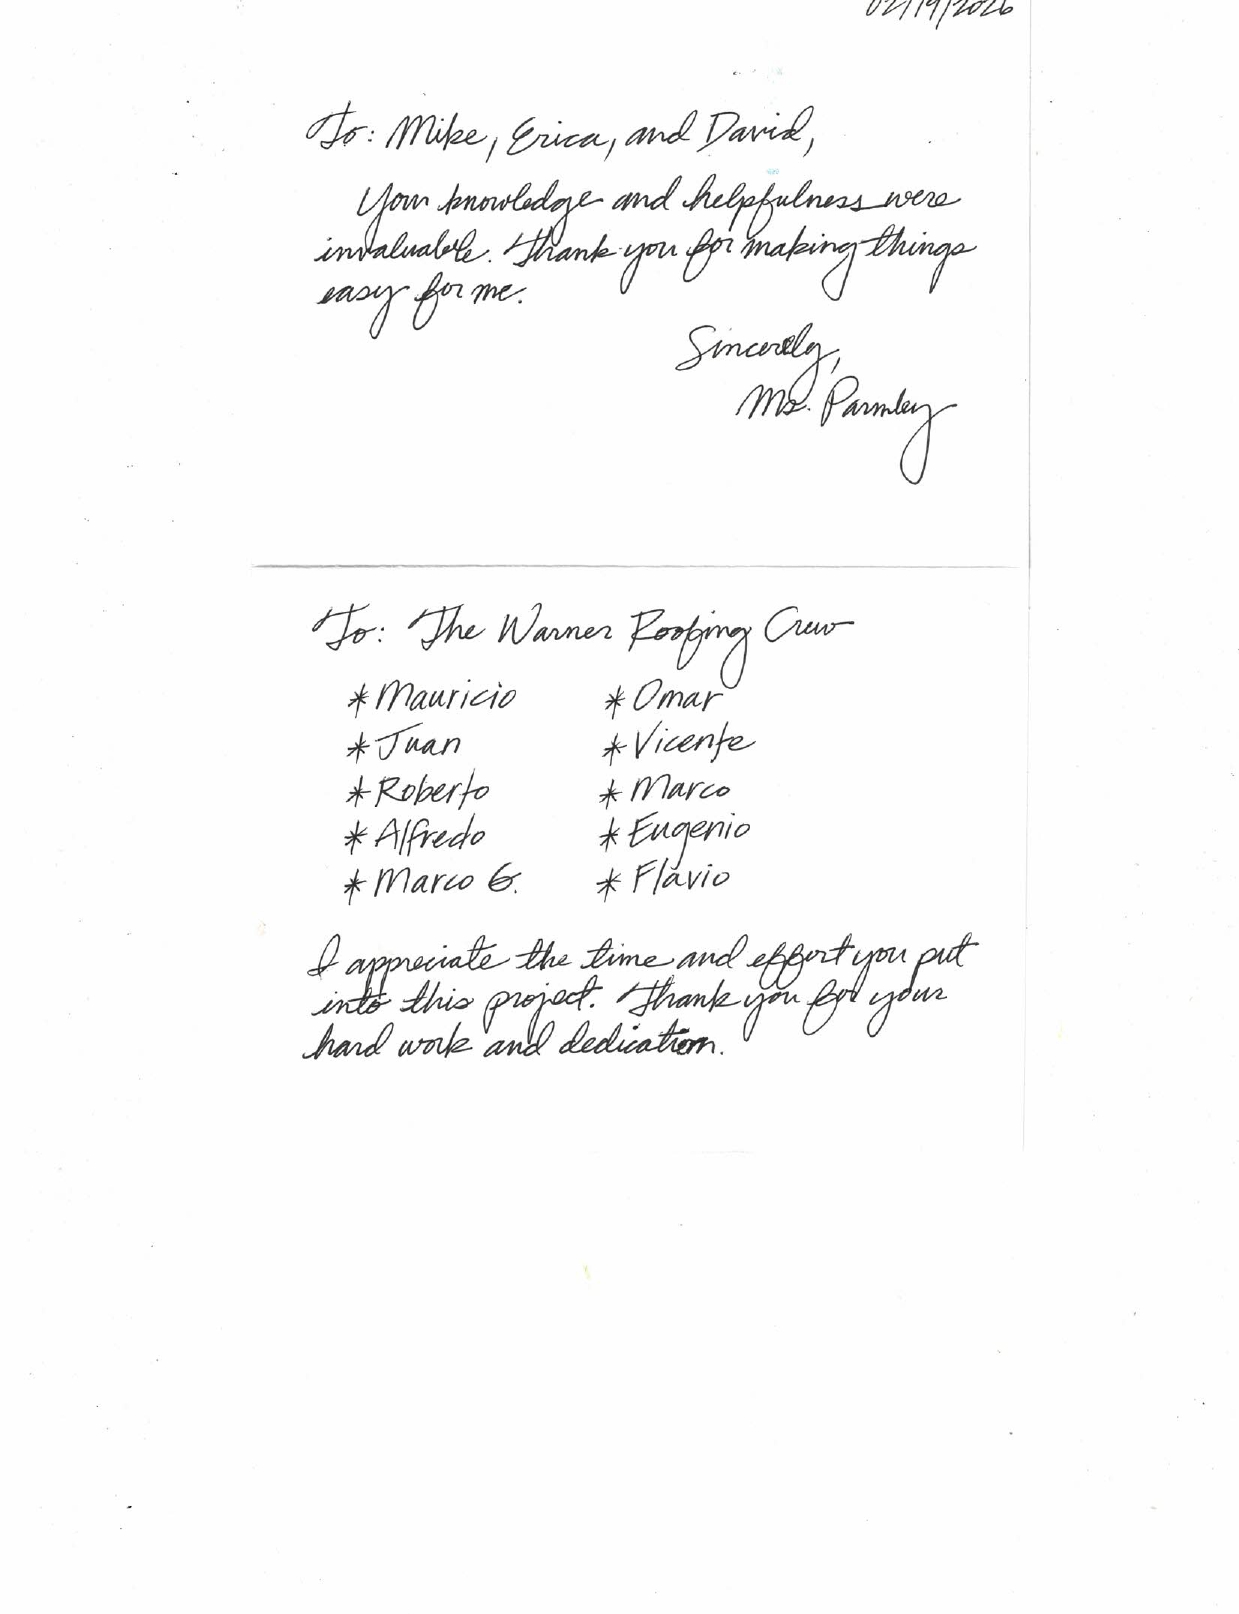 02/19/2026
To: Mike, Erica, and David,
Your knowledge and helpfulness were
invaluable. Thank you for making things
easy for me.
Sincerely,
Ms. Parmley
To: The Warner Roofing Crew
* Mauricio * Omar
* Juan * Vicente
* Roberto * Marco
* Alfredo * Eugenio
* Marco G. * Flavio
I appreciate the time and effort you put
into this project. Thank you for your
hard work and dedication.